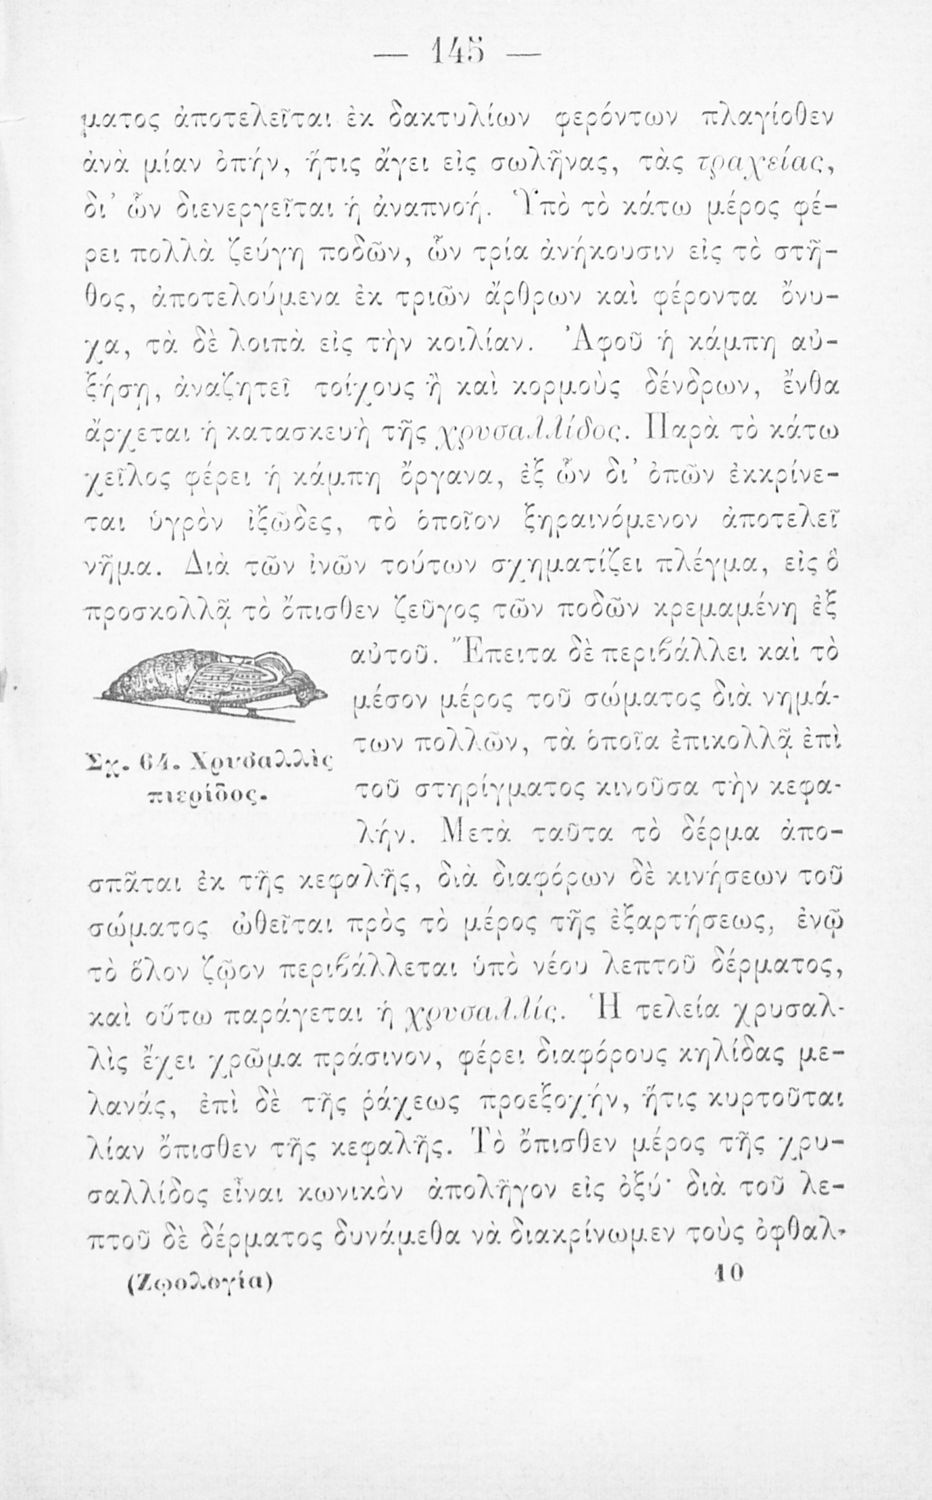 — 145 —
ματος ἀποτελεῖται ἐκ δακτυλίων φερόντων πλαγίοθεν
ἀνὰ μίαν ὀπήν, ἥτις ἄγει εἰς σωλῆνας, τὰς τραχείας,
δι’ ὧν διενεργεῖται ἡ ἀναπνοή. Ὑπὸ τὸ κάτω μέρος φέ-
ρει πολλὰ ζεύγη ποδῶν, ὧν τρία ἀνήκουσιν εἰς τὸ στῆ-
θος, ἀποτελούμενα ἐκ τριῶν ἄρθρων καὶ φέροντα ὄνυ-
χα, τὰ δὲ λοιπὰ εἰς τὴν κοιλίαν. Ἀφοῦ ἡ κάμπη αὐ-
ξήσῃ, ἀναζητεῖ τοίχους ἢ καὶ κορμοὺς δένδρων, ἔνθα
ἄρχεται ἡ κατασκευὴ τῆς χρυσαλλίδος. Παρὰ τὸ κάτω
χεῖλος φέρει ἡ κάμπη ὄργανα, ἐξ ὧν δι’ ὀπῶν ἐκκρίνε-
ται ὑγρὸν ἰξῶδες, τὸ ὁποῖον ξηραινόμενον ἀποτελεῖ
νῆμα. Διὰ τῶν ἰνῶν τούτων σχηματίζει πλέγμα, εἰς ὃ
προσκολλᾷ τὸ ὄπισθεν ζεῦγος τῶν ποδῶν κρεμαμένη ἐξ
αὐτοῦ. Ἔπειτα δὲ περιβάλλει καὶ τὸ
μέσον μέρος τοῦ σώματος διὰ νημά-
των πολλῶν, τὰ ὁποῖα ἐπικολλᾷ ἐπὶ
τοῦ στηρίγματος κινοῦσα τὴν κεφα-
λήν. Μετὰ ταῦτα τὸ δέρμα ἀπο-
Σχ. 64. Χρυσαλλὶς
πιερίδος.
σπᾶται ἐκ τῆς κεφαλῆς, διὰ διαφόρων δὲ κινήσεων τοῦ
σώματος ὠθεῖται πρὸς τὸ μέρος τῆς ἐξαρτήσεως, ἐνῷ
τὸ ὅλον ζῷον περιβάλλεται ὑπὸ νέου λεπτοῦ δέρματος,
καὶ οὕτω παράγεται ἡ χρυσαλλίς. Ἡ τελεία χρυσαλ-
λὶς ἔχει χρῶμα πράσινον, φέρει διαφόρους κηλίδας με-
λανάς, ἐπὶ δὲ τῆς ῥάχεως προεξοχήν, ἥτις κυρτοῦται
λίαν ὄπισθεν τῆς κεφαλῆς. Τὸ ὄπισθεν μέρος τῆς χρυ-
σαλλίδος εἶναι κωνικὸν ἀπολῆγον εἰς ὀξύ· διὰ τοῦ λε-
πτοῦ δὲ δέρματος δυνάμεθα νὰ διακρίνωμεν τοὺς ὀφθαλ-
(Ζῳολογία) 10